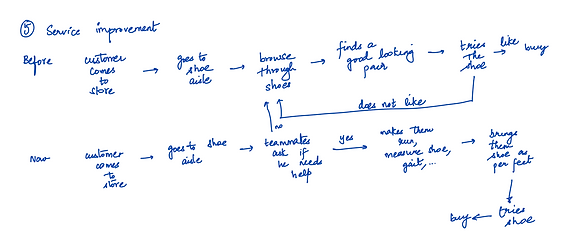 ⑤ Service improvement
Before
customer
comes
to
store
goes to
shoe
aisle
browse
through
shoes
finds a
good looking
pair
tries
the
shoe
like
buy
does not like
no
Now
customer
comes
to
store
goes to shoe
aisle
teammates
ask if
he needs
help
yes
makes them
run,
measure shoe,
gait, ...
brings
them
shoe as
per feet
tries
shoe
buy